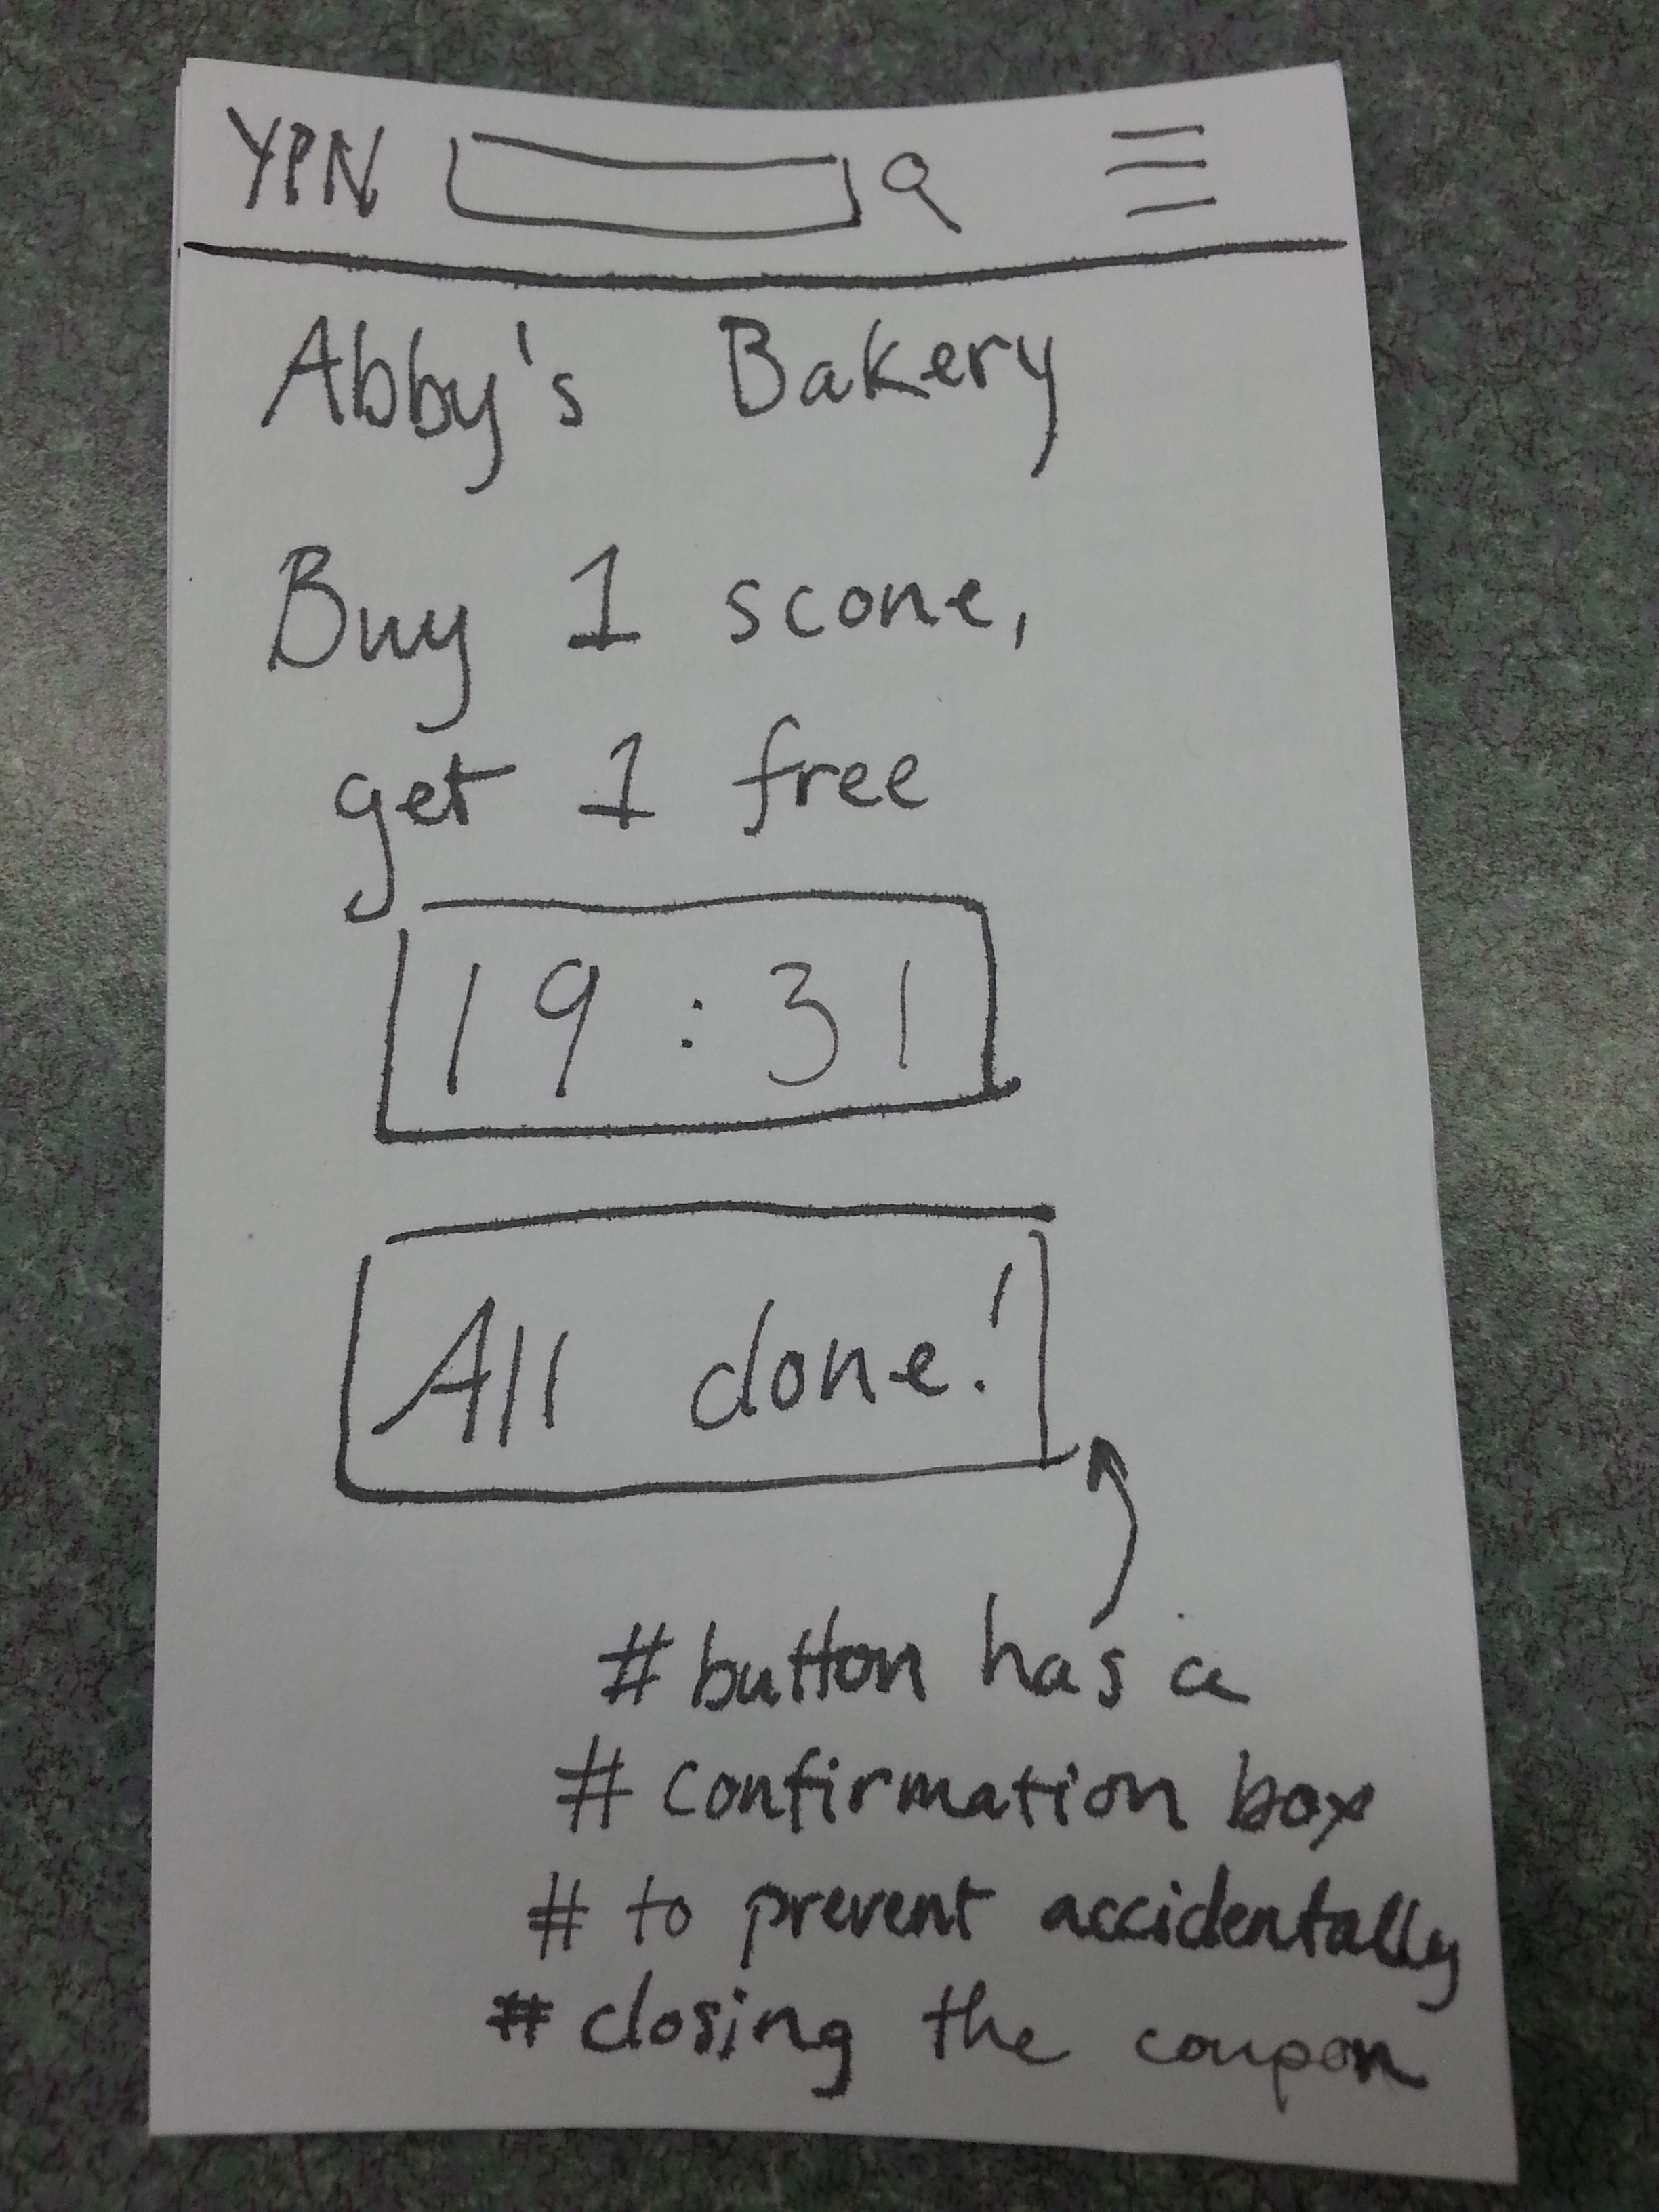 YPN
Abby's Bakery
Buy 1 scone,
get 1 free
19:31
All done!
# button has a
# confirmation box
# to prevent accidentally
# closing the coupon